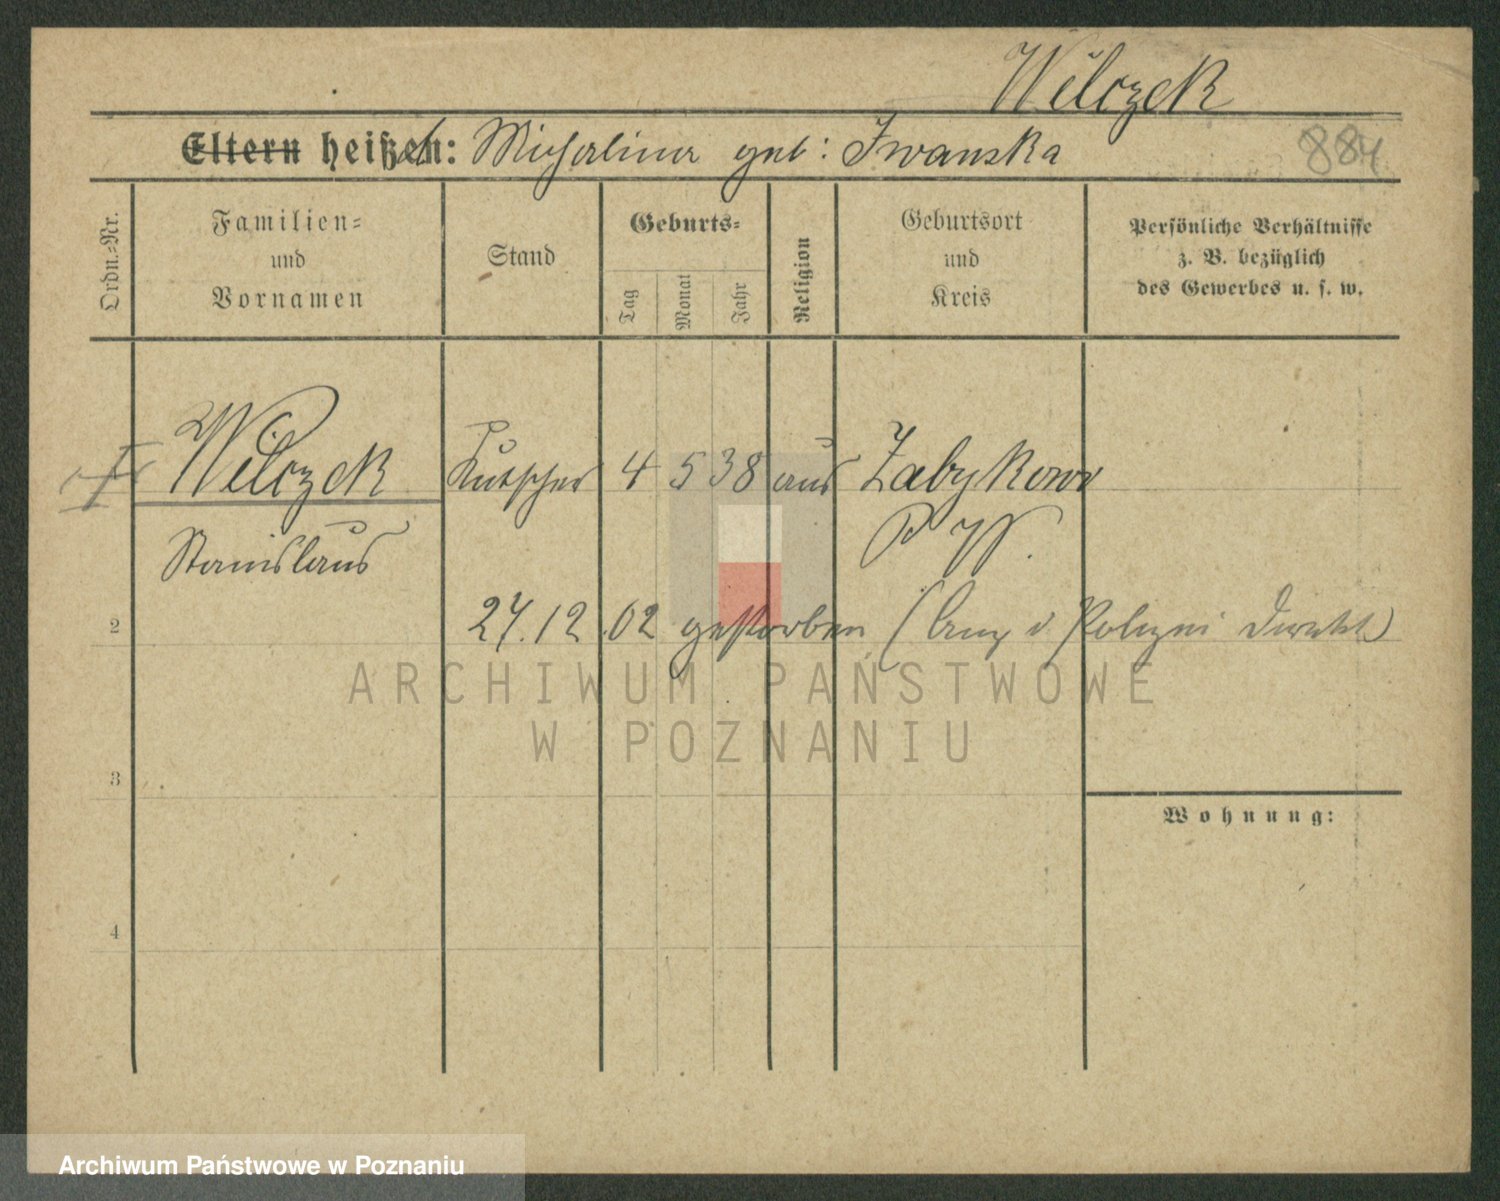 Wilczek
Eltern heißen: Michalina geb: Iwanska
884
Ordn.-Nr.
Familien-
und
Vornamen
Stand
Geburts-
Tag
Monat
Jahr
Religion
Geburtsort
und
Kreis
Persönliche Verhältnisse
z. B. bezüglich
des Gewerbes u. s. w.
Wilczek Kutscher 4 5 38 aus Zabykowo
Stanislaus P. W.
2
27.12.02 gestorben (Anz d Polizei Direkt)
ARCHIWUM PAŃSTWOWE
W POZNANIU
3
Wohnung:
4
Archiwum Państwowe w Poznaniu